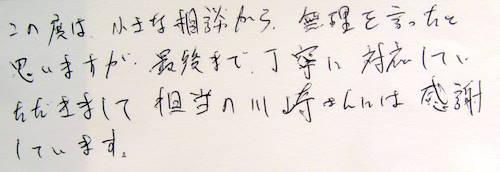 この度は、小さな相談から、無理を言ったと
思いますが、最後まで、丁寧に対応してい
ただきまして担当の川崎さんには感謝
しています。